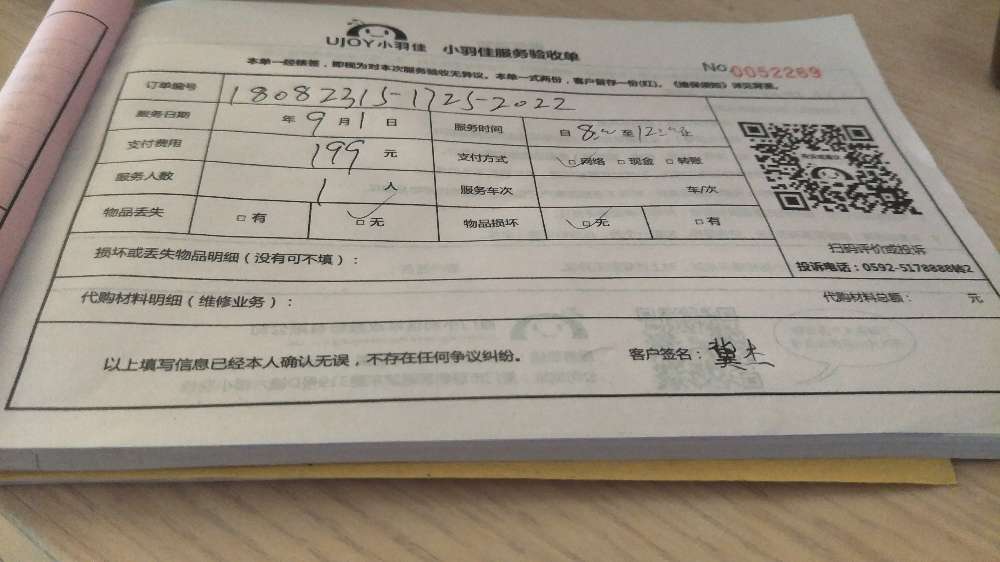 UJOY小羽佳 小羽佳服务验收单
本单一经核签，即视为对本次服务验收无异议。本单一式两份，客户留存一份(红)。《维保须知》详见背面。
No 0052269
订单编号 18082315-1725-2022
服务日期 年 9 月 1 日 服务时间 自 8:00 至 12:00 止
支付费用 199 元 支付方式 ✓□网络 □现金 □转账
服务人数 1 人 服务车次 车/次
物品丢失 □有 ✓□无 物品损坏 ✓□无 □有
扫码评价或投诉
损坏或丢失物品明细（没有可不填）：
投诉电话：0592-5178888转2
代购材料明细（维修业务）： 代购材料总额： 元
以上填写信息已经本人确认无误，不存在任何争议纠纷。 客户签名：冀杰